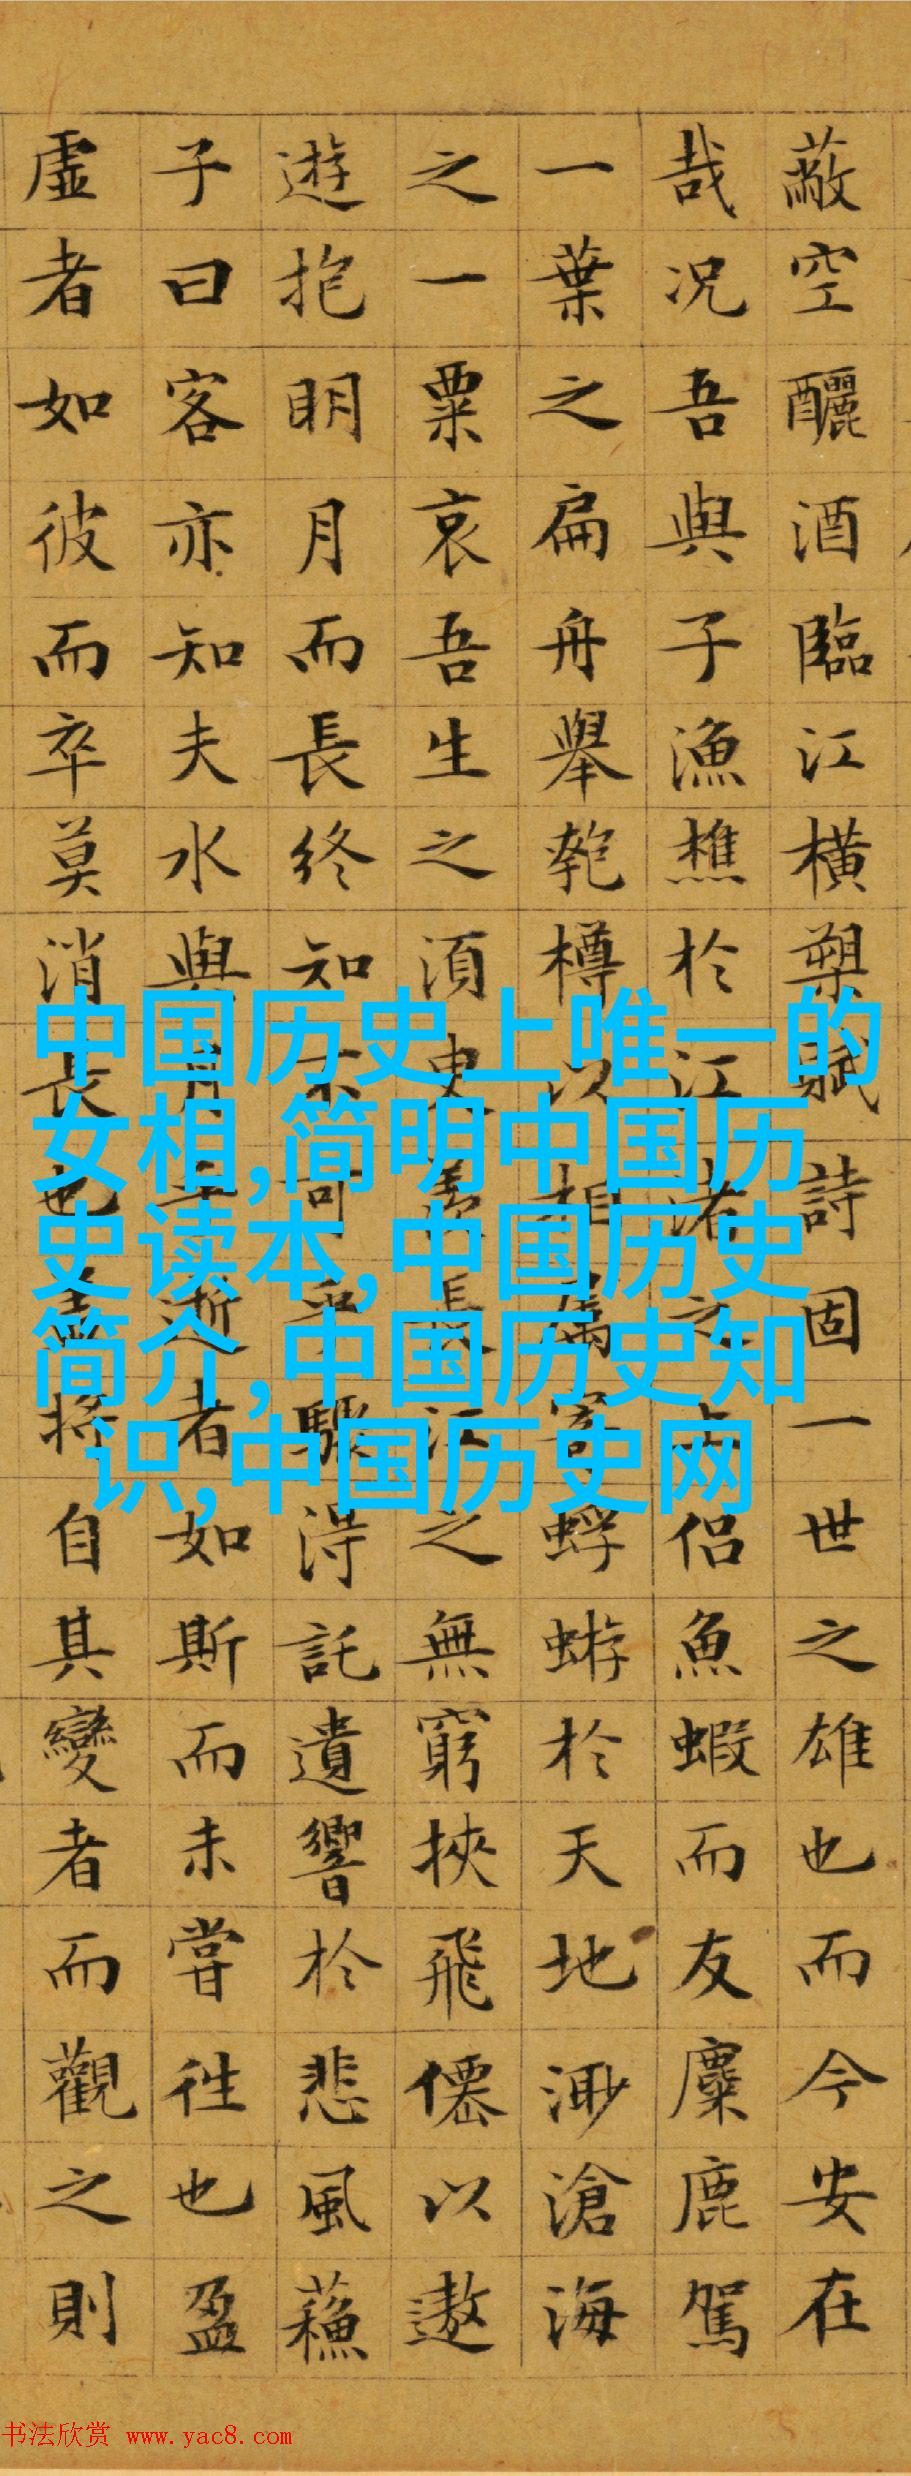 蔽空釃酒臨江橫槊賦詩固一世之雄也而今安在
哉况吾與子漁樵於江渚之上侶魚蝦而友麋鹿駕
一葉之扁舟舉匏樽以相屬寄蜉蝣於天地渺滄海
之一粟哀吾生之須臾羨長江之無窮挾飛僊以遨
遊抱明月而長終知不可乎驟得託遺響於悲風蘓
子曰客亦知夫水與月乎逝者如斯而未嘗往也盈
虛者如彼而卒莫消長也盖將自其變者而觀之則
中国历史上唯一的
女相,简明中国历
史读本,中国历史
简介,中国历史知
识,中国历史网
书法欣赏 www.yac8.com